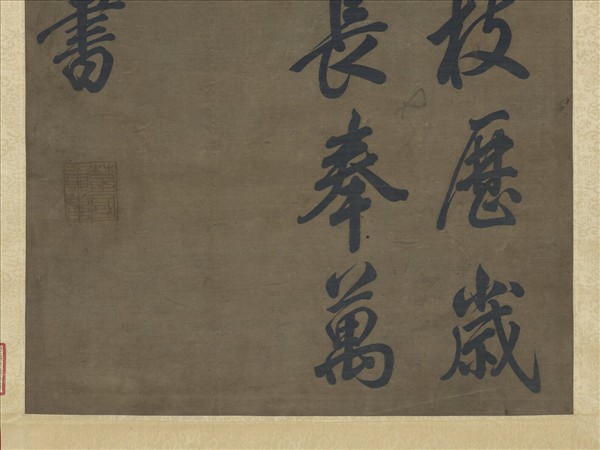 枝歷歲
長奉萬
書